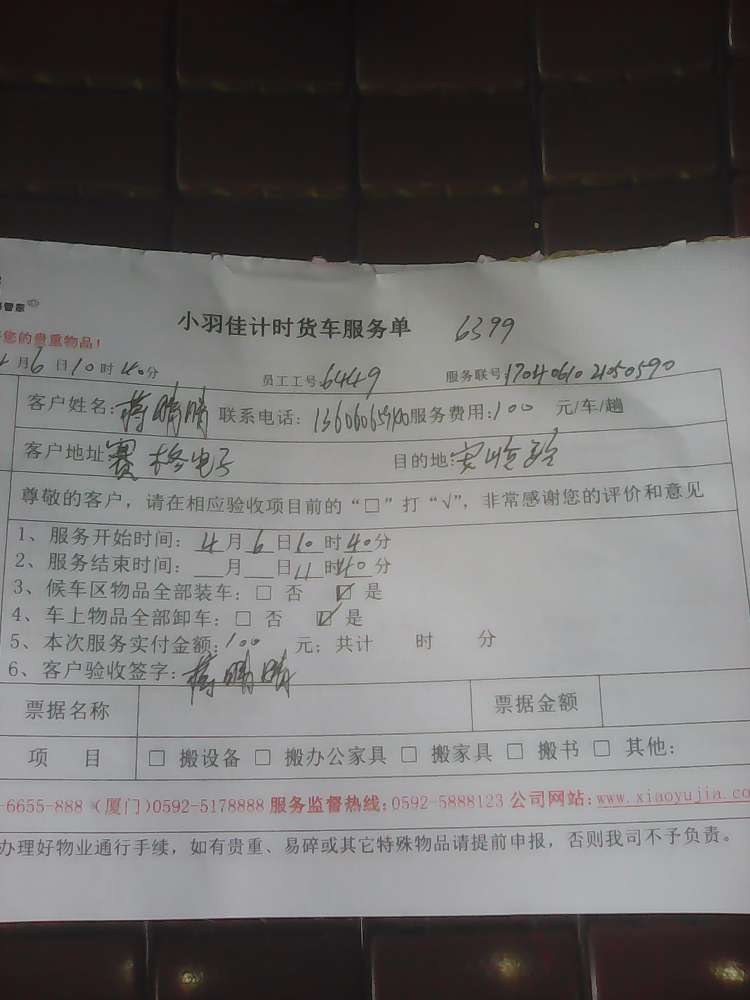 管家
小羽佳计时货车服务单 6399
您的贵重物品!
4月6日10时40分 员工工号:6449 服务联号:17040610 21050590
客户姓名:蒋晴晴 联系电话: 服务费用:100 元/车/趟
客户地址:赛格电子 目的地:
尊敬的客户,请在相应验收项目前的“□”打“√”,非常感谢您的评价和意见
1、服务开始时间:4月6日10时40分
2、服务结束时间:__月__日11时40分
3、候车区物品全部装车:□ 否 ☑ 是
4、车上物品全部卸车:□ 否 ☑ 是
5、本次服务实付金额:100 元; 共计 时 分
6、客户验收签字:蒋晴晴
票据名称 票据金额
项 目 □ 搬设备 □ 搬办公家具 □ 搬家具 □ 搬书 □ 其他:
-6655-888(厦门)0592-5178888 服务监督热线:0592-5888123 公司网站:www.xiaoyujia.co
办理好物业通行手续,如有贵重、易碎或其它特殊物品请提前申报,否则我司不予负责。